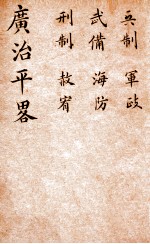 兵制 軍政
武備 海防
刑制 赦宥
廣治平畧